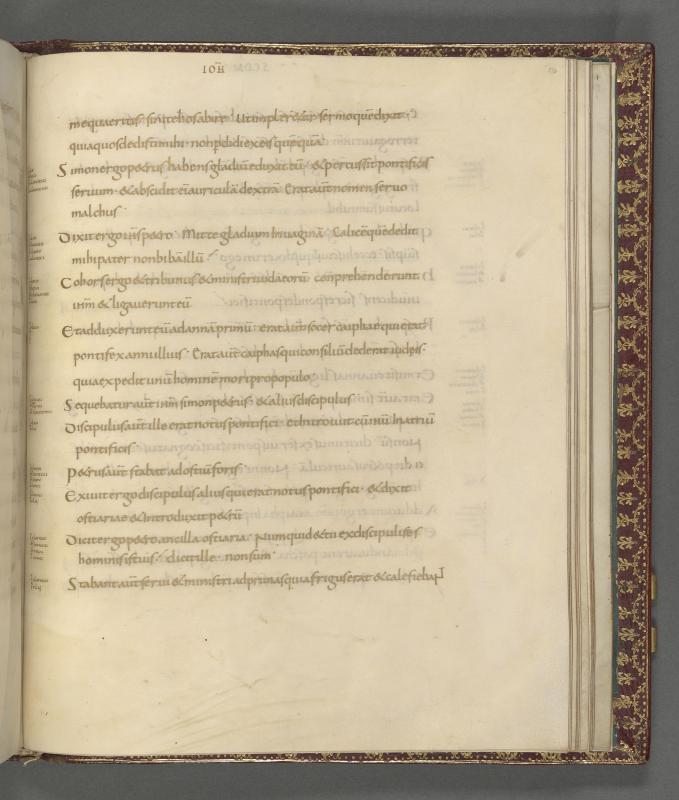 IOH̄
me quaeritis sinite hos abire · Ut impleretur sermo quē dixit ·
quia quos dedisti mihi · non p̄didi ex eis quēquā
Simon ergo petrus habens gladiū eduxit eū · & percussit pontificis
seruum · & abscidit ei auriculā dextrā Erat aut̄ nomen seruo
malchus ·
Dixit ergo ih̄s petro · Mitte gladium in uaginā Calicē quē dedit
mihi pater non bibā illū
Cohors ergo & tribunus & ministri iudaeorū conprehenderunt
ih̄m & ligauerunt eū
Et adduxerunt eū ad annā primū · erat aut̄ socer caiphae qui erat
pontifex anni illius · Erat aut̄ caiphas qui consiliū dederat iudeis ·
quia expedit unū hominē mori pro populo
Sequebatur aut̄ ih̄m simon petrus · & alius discipulus
Discipulus aut̄ ille erat notus pontifici · et introiuit cū ih̄u in atriū
pontificis ·
Petrus aut̄ stabat ad ostiū foris
Exiuit ergo discipulus alius qui erat notus pontifici · & dixit
ostiariae & introduxit petrū
Dicit ergo petro ancilla ostiaria · Numquid & tu ex discipulis es
hominis istius · dicit ille · non sum ·
Stabant aut̄ serui & ministri ad prunas quia frigus erat & calefiebant